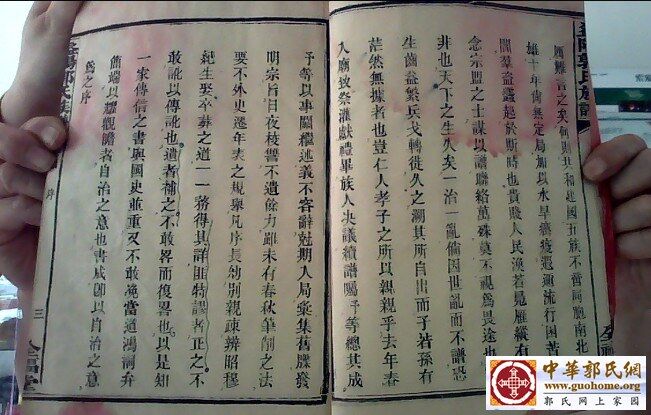 雄十年尚無定局加以水旱癘疫迭遍流行困苦
閭羣盜蠭起於斯時也貴賤人民渙若晨雁縱有
念宗盟之士謀以譜聯絡萬殊莫不視爲畏途也
非也天下之生久矣一治一亂倘因世亂而不譜恐
生齒益繁兵戈轉徙久之溯其所自出而子若孫有
茫然無據者也豈仁人孝子之所以親親乎去年春
入廟致祭灌獻禮畢族人决議續譜囑予等總其成
予等以事關繼述義不容辭尅期入局彙集舊牒發
明宗旨日夜校讐不遺餘力雖未有春秋筆削之法
要不外史遷年表之規舉凡序長幼別親疎辨昭穆
紀生娶卒葬之道一一務得其詳匪特謬者正之不
敢訛以傳訛也遺者補之不敢畧而復畧也以是知
一家傳信之書與國史並重又不敢凂當道鴻詞弁
簡端以耀觀瞻者自治之意也書成即以自治之意
爲之序
三
中華郭氏網
www.guohome.org
郭氏网上家园